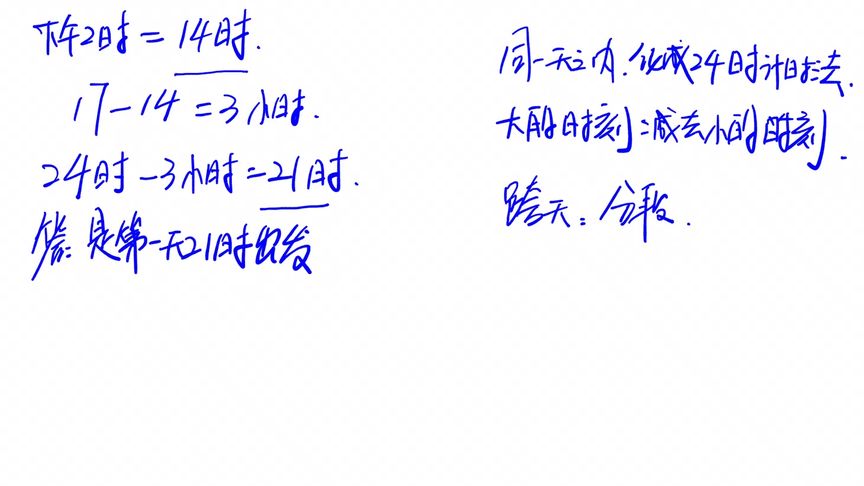 下午2时=14时.
17-14=3小时.
24时-3小时=21时.
答:是第一天21时出发
同一天之内.化成24时计时法.
大的时刻:减去小的时刻.
跨天:分段.